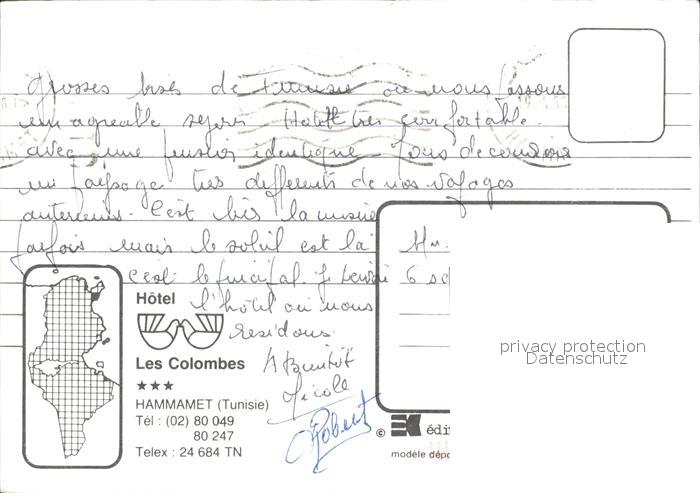 Grosses bises de Tunisie où nous passons
un agreable sejour Hotel très confortable.
avec une pension identique nous decouvrons
un paysage très differents de nos voyages
anterieurs. C'est bis la musique
parfois mais le soleil est là
c'est le principal.
l'hôtel où nous
residons.
A Bientôt
Nicole
Robert
Hôtel
Les Colombes
★★★
HAMMAMET (Tunisie)
Tél : (02) 80 049
80 247
Telex : 24 684 TN
privacy protection
Datenschutz
© EK édi
modèle dépo